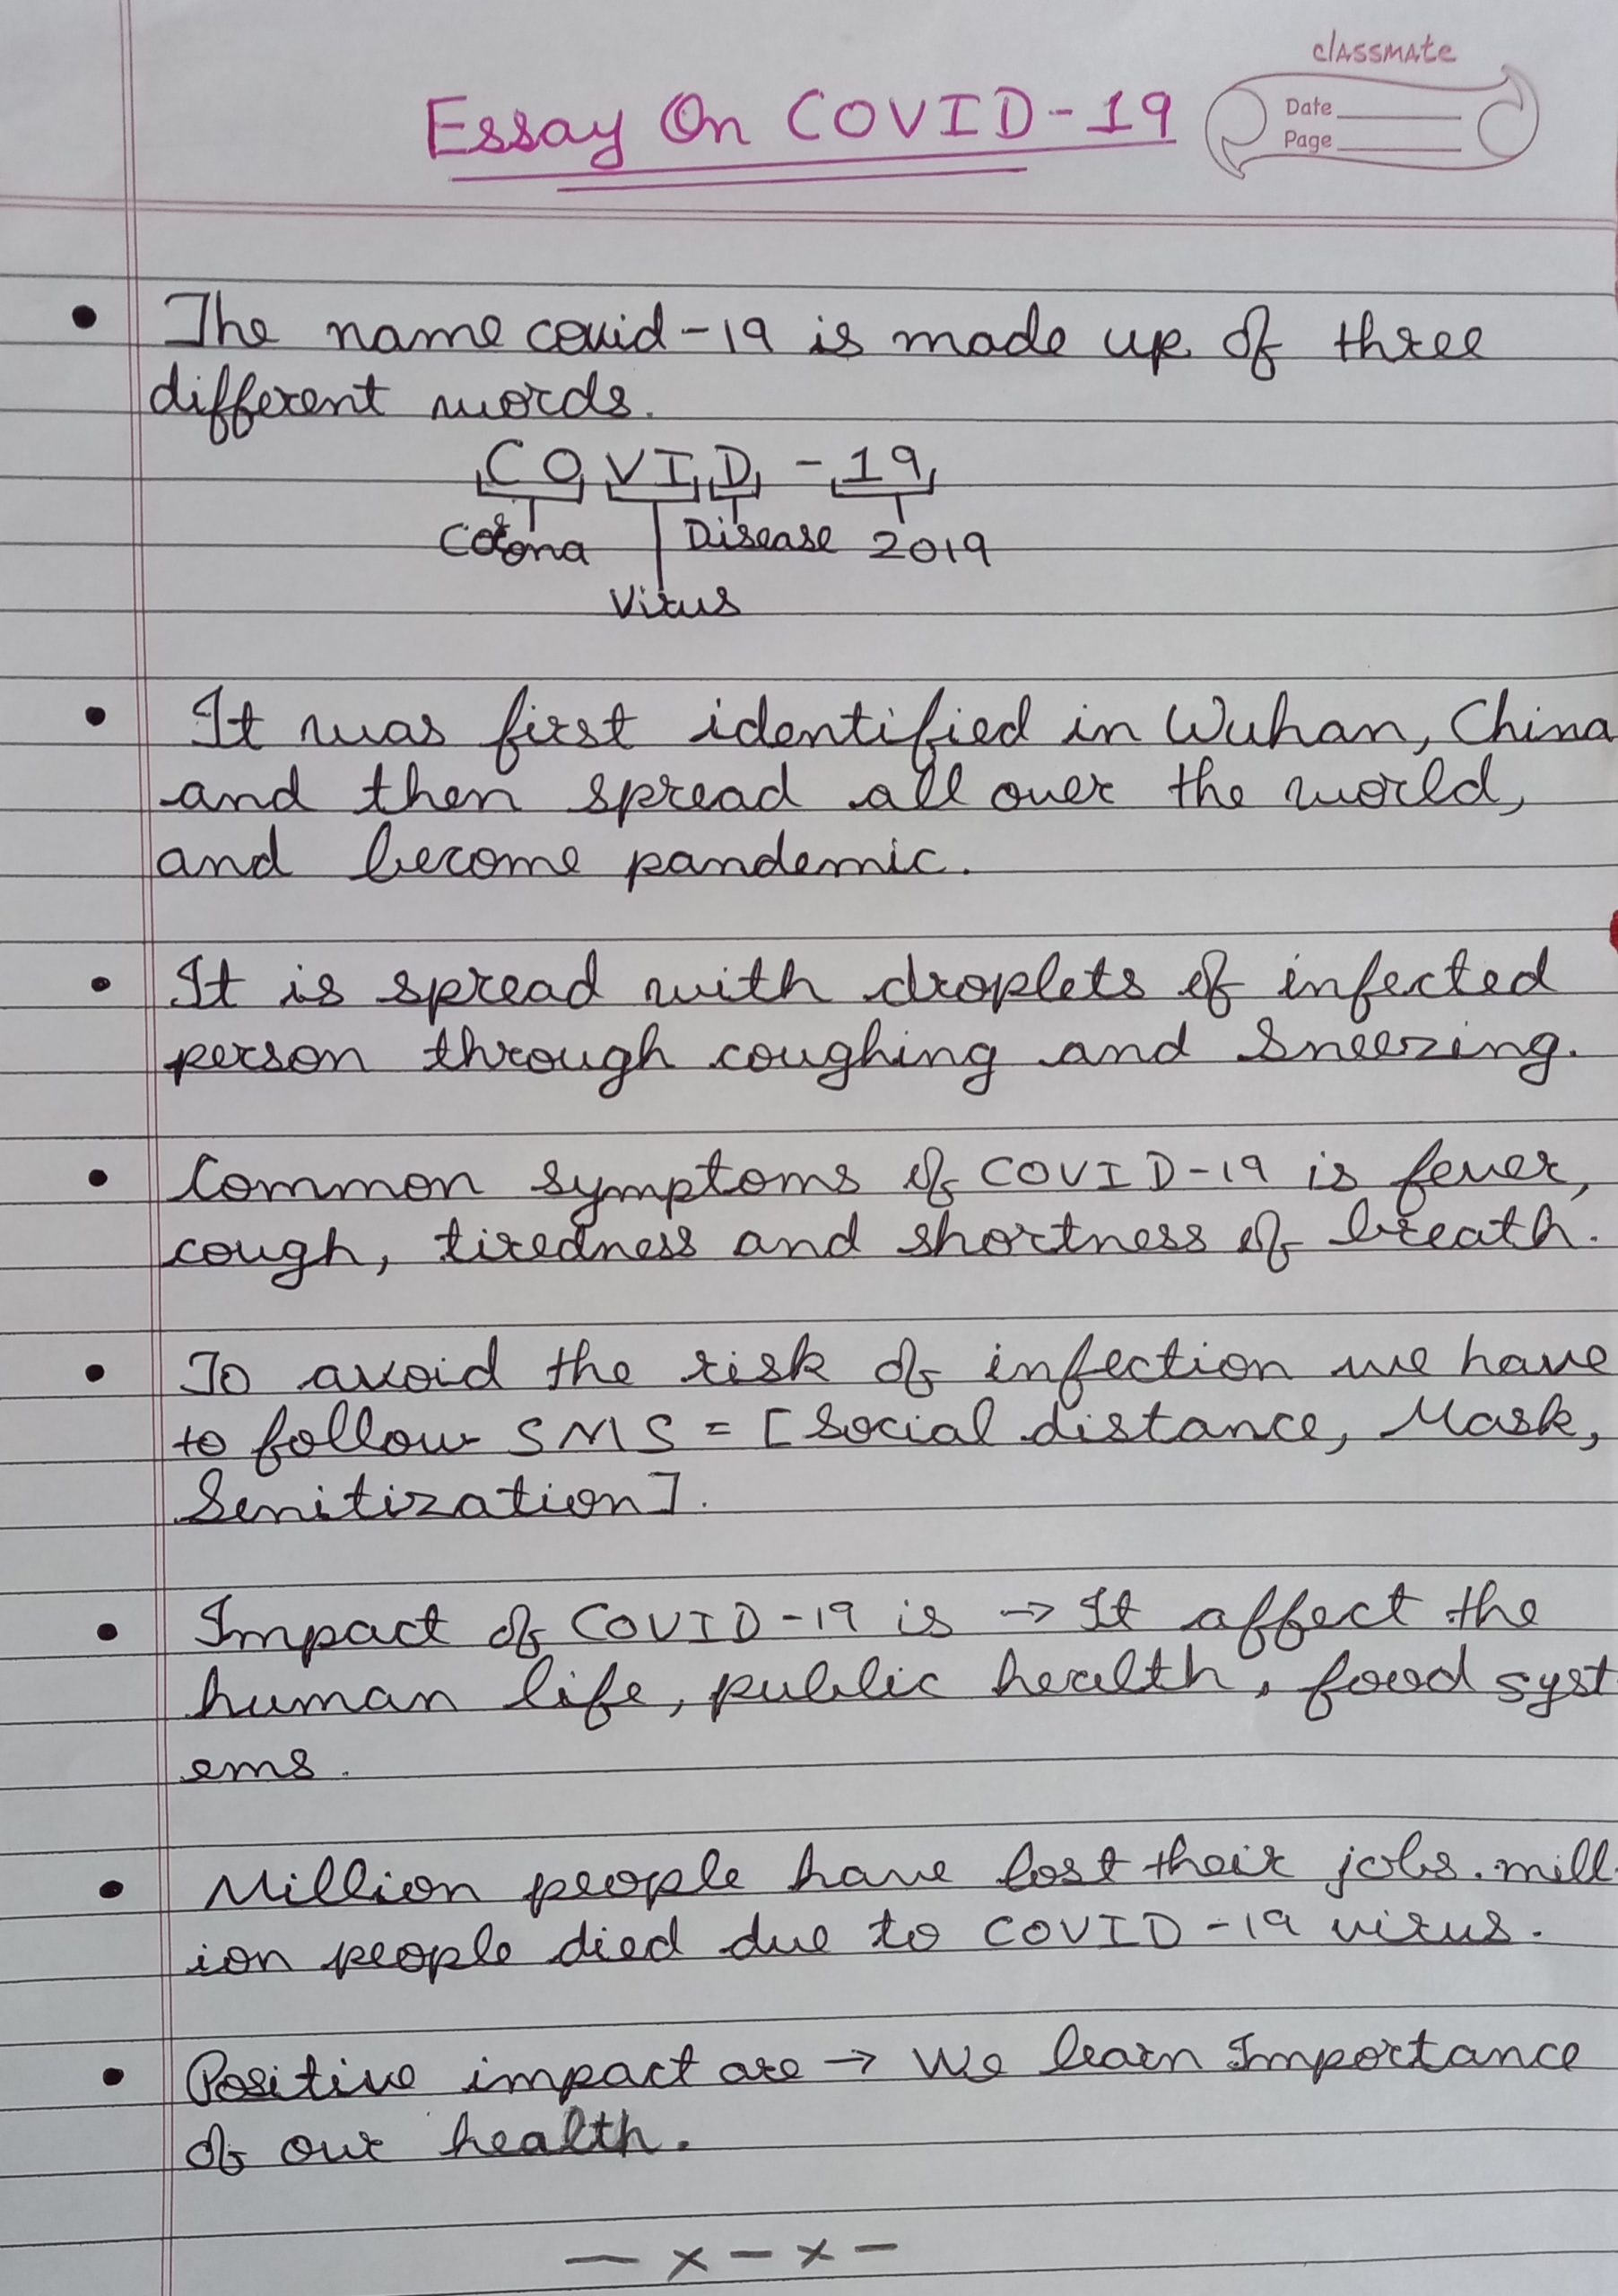 classmate
Date
Page
Essay On COVID-19
• The name covid-19 is made up of three
different words.
COVID-19
Corona Disease 2019
Virus
• It was first identified in Wuhan, China
and then spread all over the world,
and become pandemic.
• It is spread with droplets of infected
person through coughing and Sneezing.
• Common symptoms of COVID-19 is fever,
cough, tiredness and shortness of breath.
• To avoid the risk of infection we have
to follow SMS = [Social distance, Mask,
Senitization].
• Impact of COVID-19 is → It affect the
human life, public health, food syst
ems.
• Million people have lost their jobs. mill
ion people died due to COVID-19 virus.
• Positive impact are → We learn Importance
of our health.
— x — x —